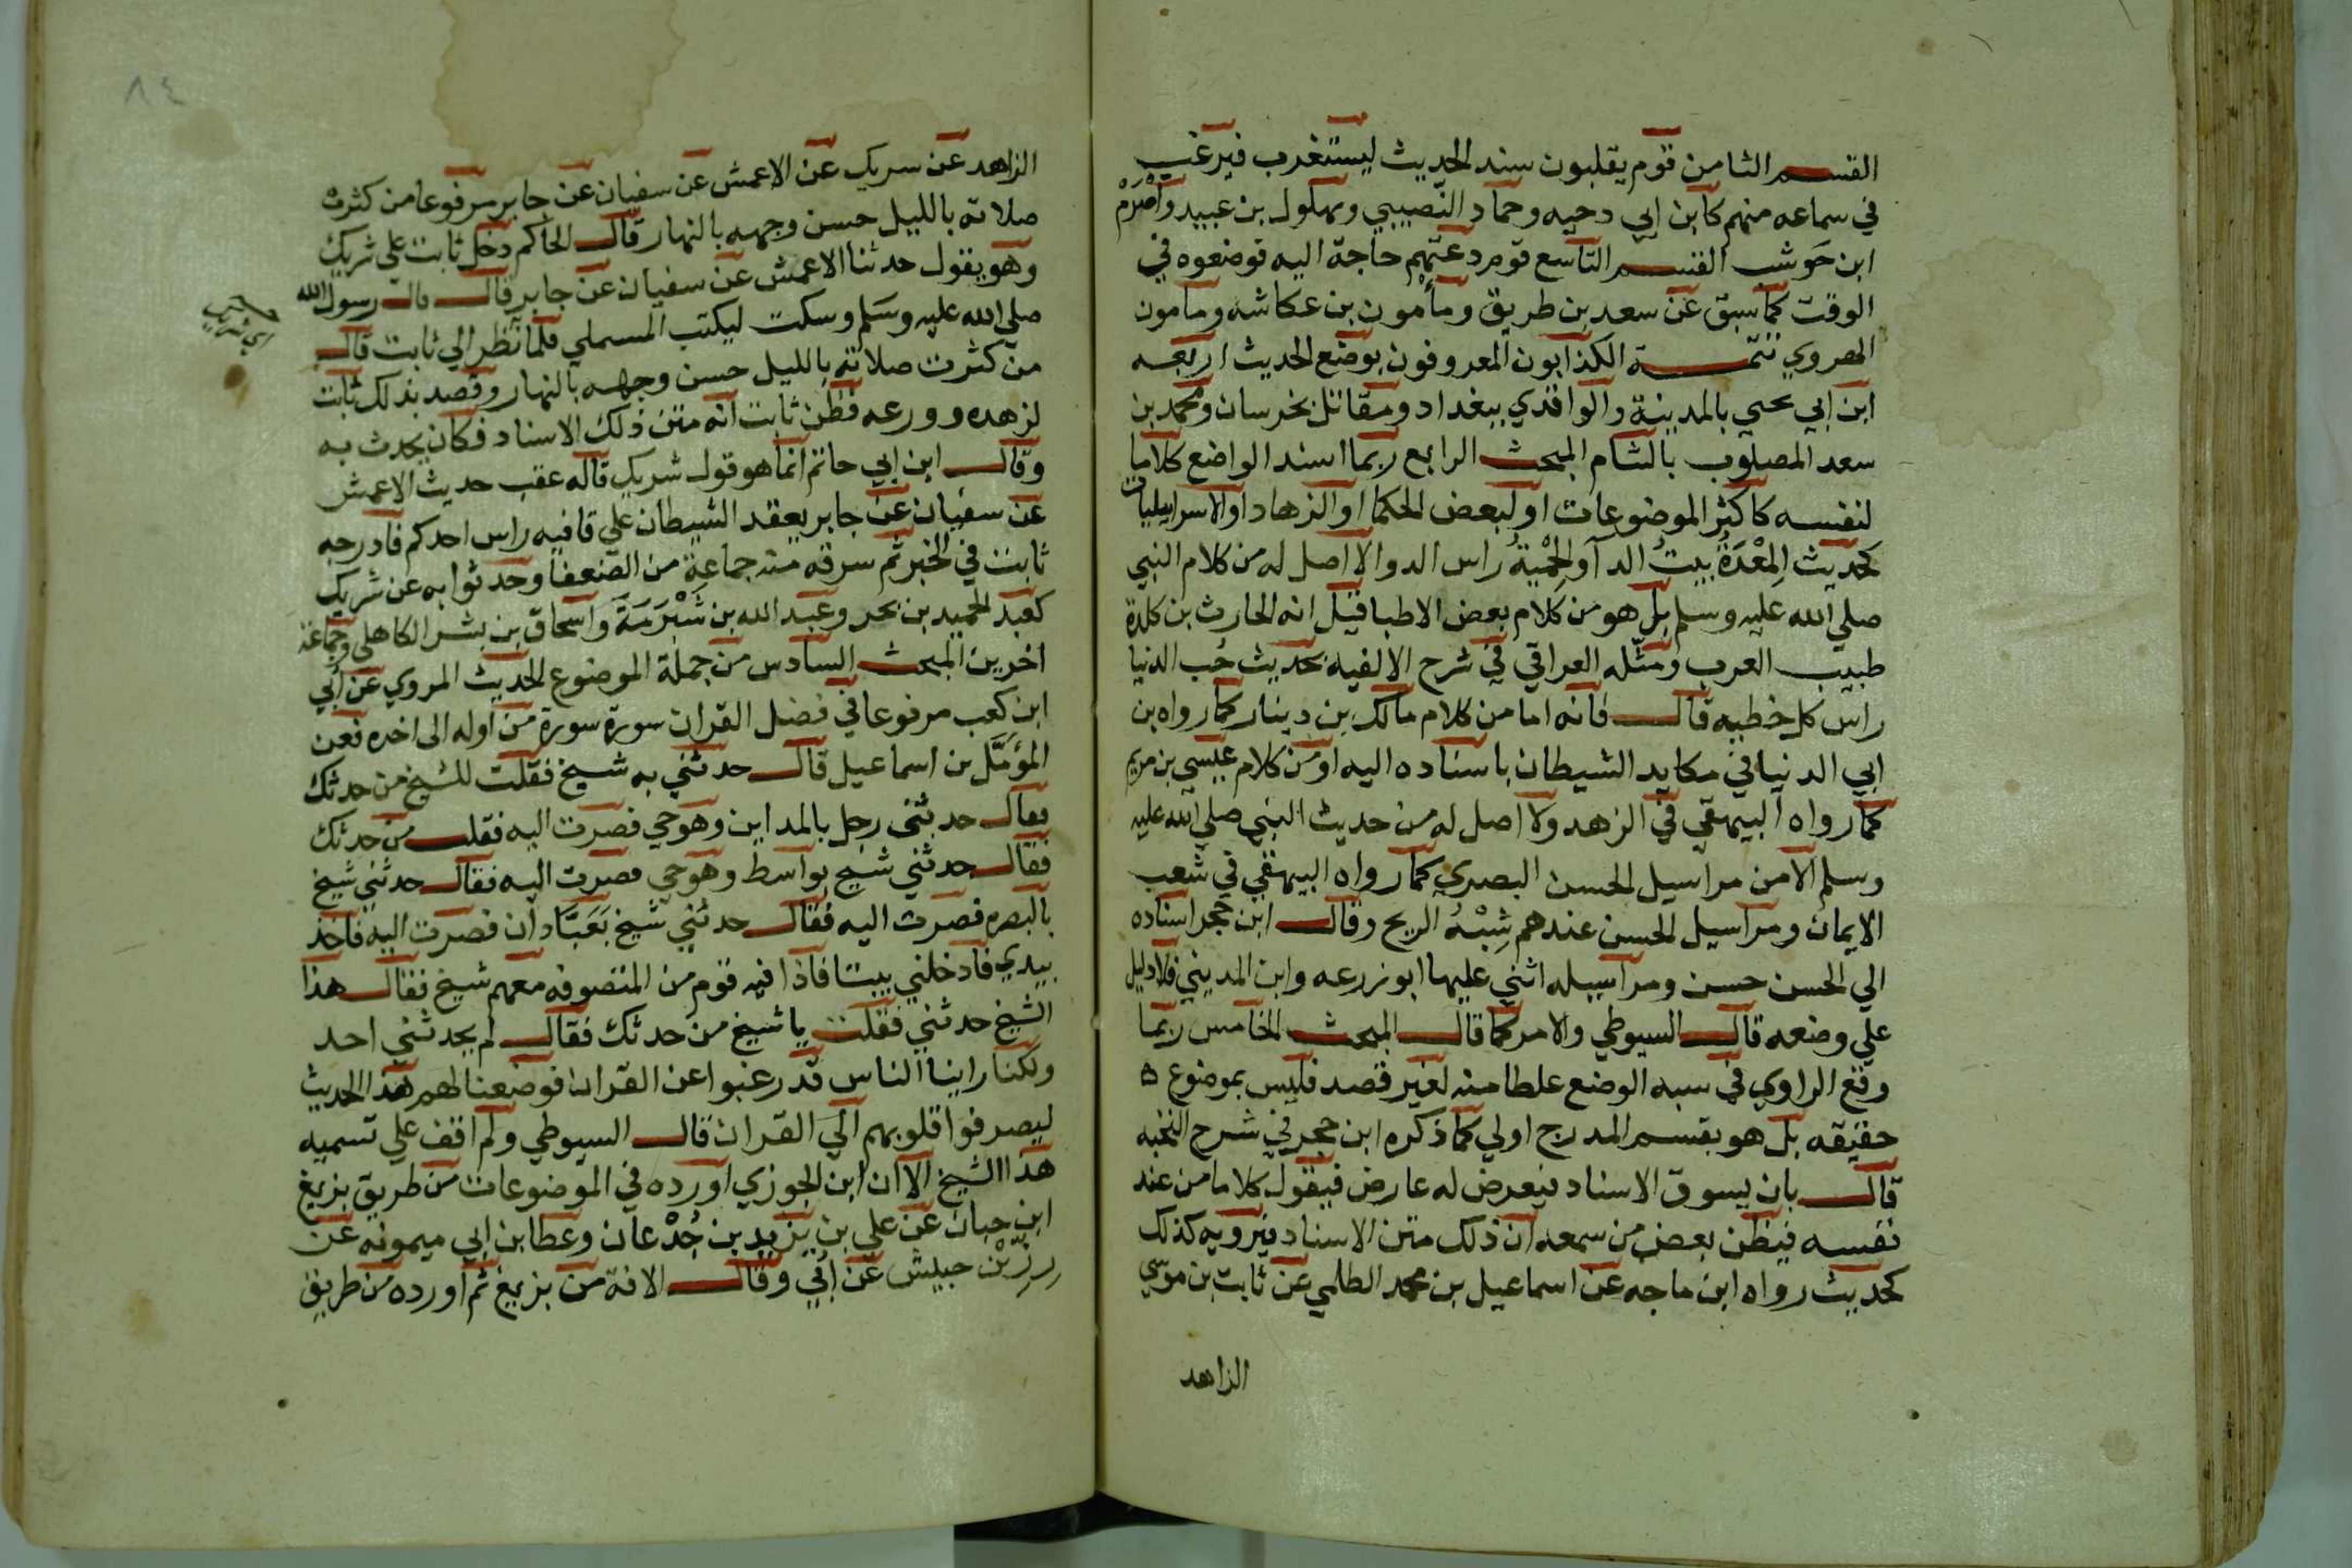 القسم الثامن قوم يقلبون سند الحديث ليستغرب فيرغب
في سماعه منهم كابن ابي دحيه وحماد النصيبي وبهلول بن عبيد واصرم
ابن حوشب القسم التاسع قوم دعتهم حاجة اليه فوضعوه في
الوقت كما سبق عن سعد بن طريق ومأمون بن عكاشه ومامون
الهروي تتمة الكذابون المعروفون بوضع الحديث اربعه
ابن ابي يحيي بالمدينة والواقدي ببغداد ومقاتل بخرسان ومحمد بن
سعد المصلوب بالشام المبحث الرابع ربما اسند الواضع كلاما
لنفسه كاكثر الموضوعات او لبعض الحكما او الزهاد او الاسراييليات
كحديث المعدة بيت الدآ والحمية راس الدوا لا اصل له من كلام النبي
صلي الله عليه وسلم بل هو من كلام بعض الاطبا قيل انه الحارث بن كلدة
طبيب العرب ومثله العراقي في شرح الالفيه بحديث حب الدنيا
راس كل خطيه قال فانه اما من كلام مالك بن دينار كما رواه بن
ابي الدنيا في مكايد الشيطان باسناده اليه او من كلام عيسي بن مريم
كما رواه البيهقي في الزهد ولا اصل له من حديث النبي صلي الله عليه
وسلم الا من مراسيل الحسن البصري كما رواه البيهقي في شعب
الايمان ومراسيل الحسن عندهم شبه الريح وقال ابن حجر اسناده
الي الحسن حسن ومراسيله اثني عليها ابو زرعه وابن المديني فلا دليل
علي وضعه قال السيوطي والامر كما قال المبحث الخامس ربما
وقع الراوي في سبه الوضع غلطا منه لغير قصد فليس بموضوع ٥
حقيقه بل هو بقسم المدرج اولي كما ذكره ابن حجر في شرح النخبه
قال بان يسوق الاسناد فيعرض له عارض فيقول كلاما من عند
نفسه فيظن بعض من سمعه ان ذلك متن الاسناد فيرويه كذلك
كحديث رواه ابن ماجه عن اسماعيل بن محمد الطلحي عن ثابت بن موسي
الزاهد
٨٤
الزاهد عن سريك عن الاعمش عن سفيان عن جابر مرفوعا من كثرت
صلاته بالليل حسن وجهه بالنهار قال الحاكم دخل ثابت علي شريك
وهو يقول حدثنا الاعمش عن سفيان عن جابر قال قال رسول الله
صلي الله عليه وسلم وسكت ليكتب المسملي فلما نظر الي ثابت قال
من كثرت صلاته بالليل حسن وجهه بالنهار وقصد بذلك ثابت
لزهده وورعه فظن ثابت انه متن ذلك الاسناد فكان يحدث به
وقال ابن ابي حاتم انما هو قول شريك قاله عقب حديث الاعمش
عن سفيان عن جابر يعقد الشيطان علي قافيه راس احدكم فادرجه
ثابت في الخبر ثم سرقه منه جماعة من الضعفا وحدثوا به عن شريك
كعبد الحميد بن بحر وعبد الله بن شبرمة واسحاق بن بشر الكاهلي وجماعة
اخرين المبحث السادس من جملة الموضوع الحديث المروي عن ابي
ابن كعب مرفوعا في فضل القران سورة سورة من اوله الى اخره فعن
المؤمل بن اسماعيل قال حدثني به شيخ فقلت للشيخ من حدثك
فقال حدثني رجل بالمداين وهو حي فصرت اليه فقلت من حدثك
فقال حدثني شيخ بواسط وهو حي فصرت اليه فقال حدثني شيخ
بالبصره فصرت اليه فقال حدثني شيخ بعبادان فصرت اليه فاخذ
بيدي فادخلني بيتا فاذا فيه قوم من المتصوفه معهم شيخ فقال هذا
الشيخ حدثني فقلت يا شيخ من حدثك فقال لم يحدثني احد
ولكنا راينا الناس قد رغبوا عن القران فوضعنا لهم هذا الحديث
ليصرفوا قلوبهم الي القران قال السيوطي ولم اقف علي تسميه
هذا الشيخ الا ان ابن الجوزي اورده في الموضوعات من طريق بزيغ
ابن حبان عن علي بن يزيد بن جدعان وعطا بن ابي ميمونه عن
رزين حبيش عن ابي وقال الافة من بزيغ ثم اورده من طريق